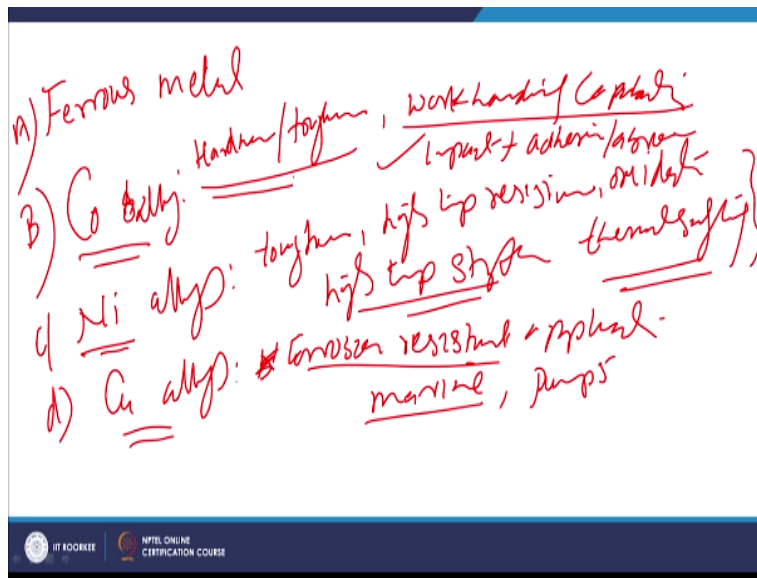 A) Ferrous metal
B) Co alloy: Hardness/toughness, work hardening
impact + adhesion/abrasion
c) Ni alloys: toughness, high temp resistance, oxidat
high temp thermal
d) Cu alloys: Corrosion resistant
marine, pumps
IIT ROORKEE
NPTEL ONLINE
CERTIFICATION COURSE